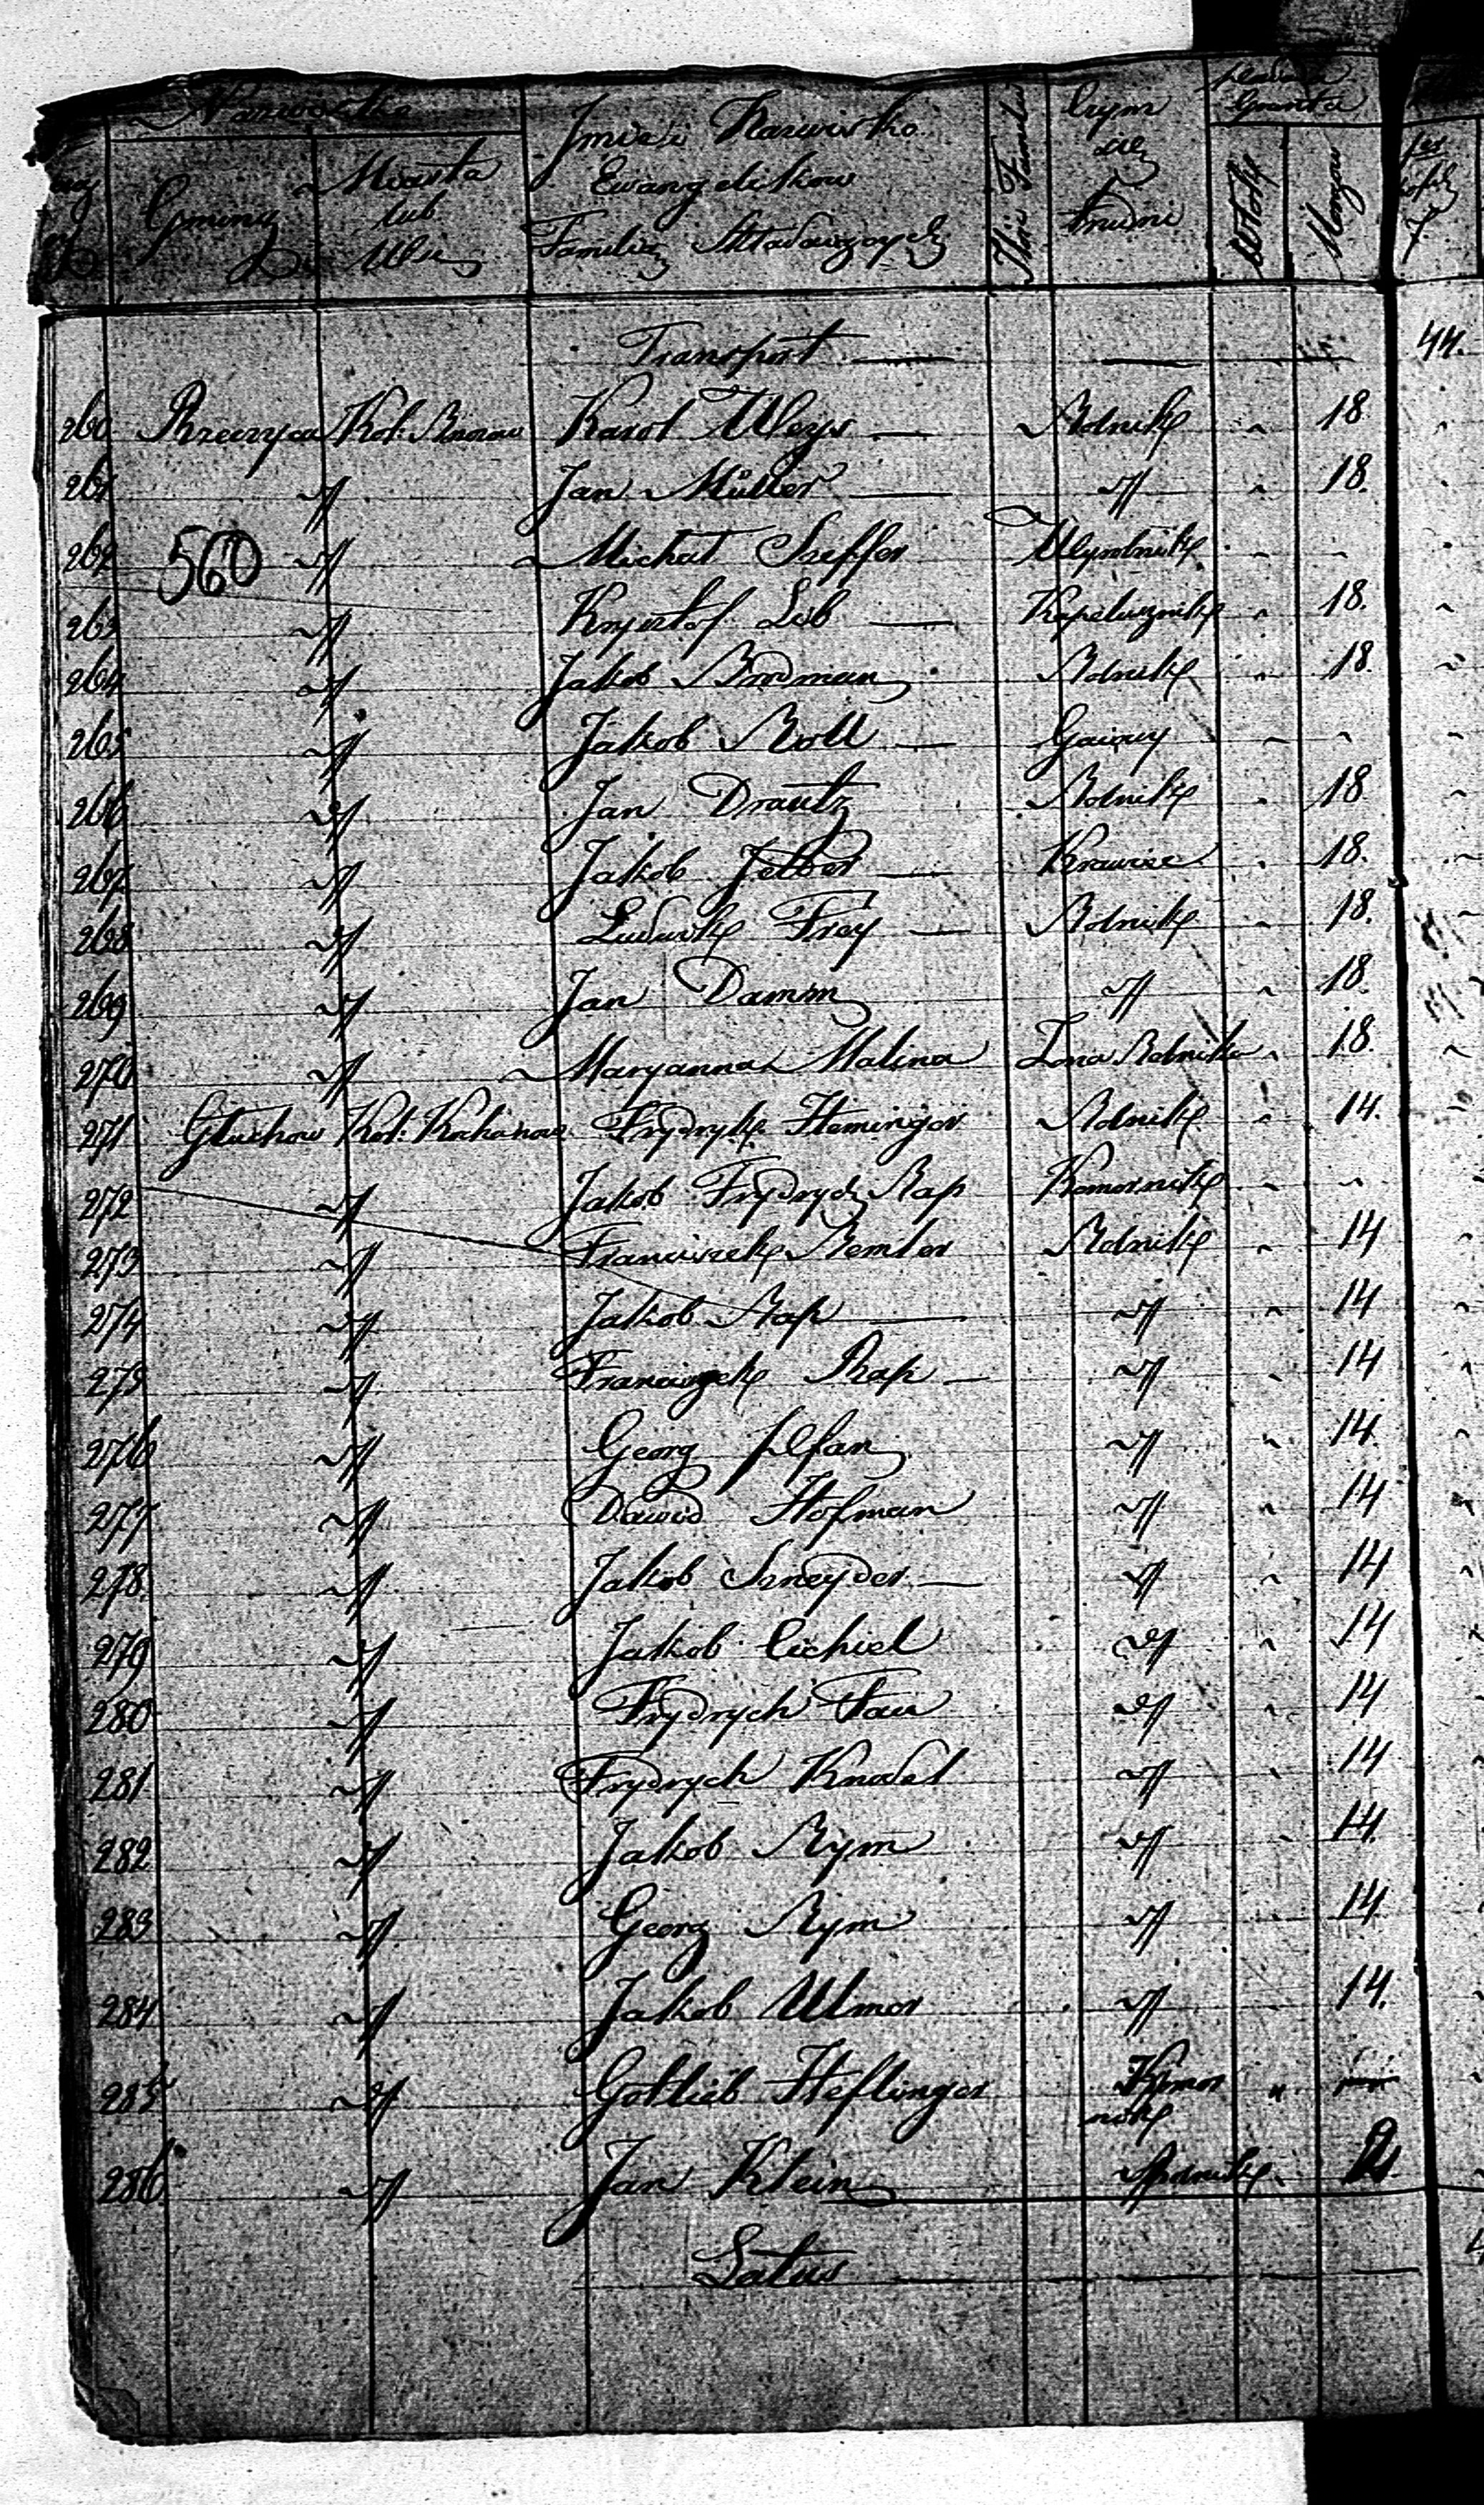 Nazwisko
Gminy
Miasta
lub
Wsi
Imie i Nazwisko
Ewangelikow
Familią Składaiących
Czym
się
trudni
posiada
Gruntu
Włók
Morgow
Transport — 44.
260 Rzeczyca Kol: Karol Weys — Rolnik " 18.
261 " Jan Müller — " " 18.
262 560 " Michał Szeffer Młynarz " "
263 " Krysztof Lob — Kapelusznik " 18.
264 " Jakob Brodman Rolnik " 18.
265 " Jakob Roll — Gaiowy " "
266 " Jan Drautz Rolnik " 18
267 " Jakob — Krawiec " 18.
268 " Ludwik Frey — Rolnik " 18.
269 " Jan Damm " " 18.
270 " Maryanna Malina Żona Rolnika " 18.
271 Głuchow Kol: Kochanow Frydryk Heminger Rolnik " 14.
272 " Jakob Frydrych Rap Komornik " "
273 " Franciszek Remler Rolnik " 14
274 " Jakob Rap — " " 14
275 " Franciszek Rap — " " 14
276 " Georg Pfan " " 14.
277 " Dawid Hofman " " 14
278. " Jakob Szneyder — " " 14
279 " Jakob Cichiel " " 14
280 " Frydrych Fau " " 14
281 " Frydrych Knodel " " 14
282 " Jakob Rym " " 14.
283 " Georg Rym " " 14
284 " Jakob Ulmer " " 14.
285 " Gottlieb Heflinger Komor
nik "
286 " Jan Klein Rolnik "
Latus —